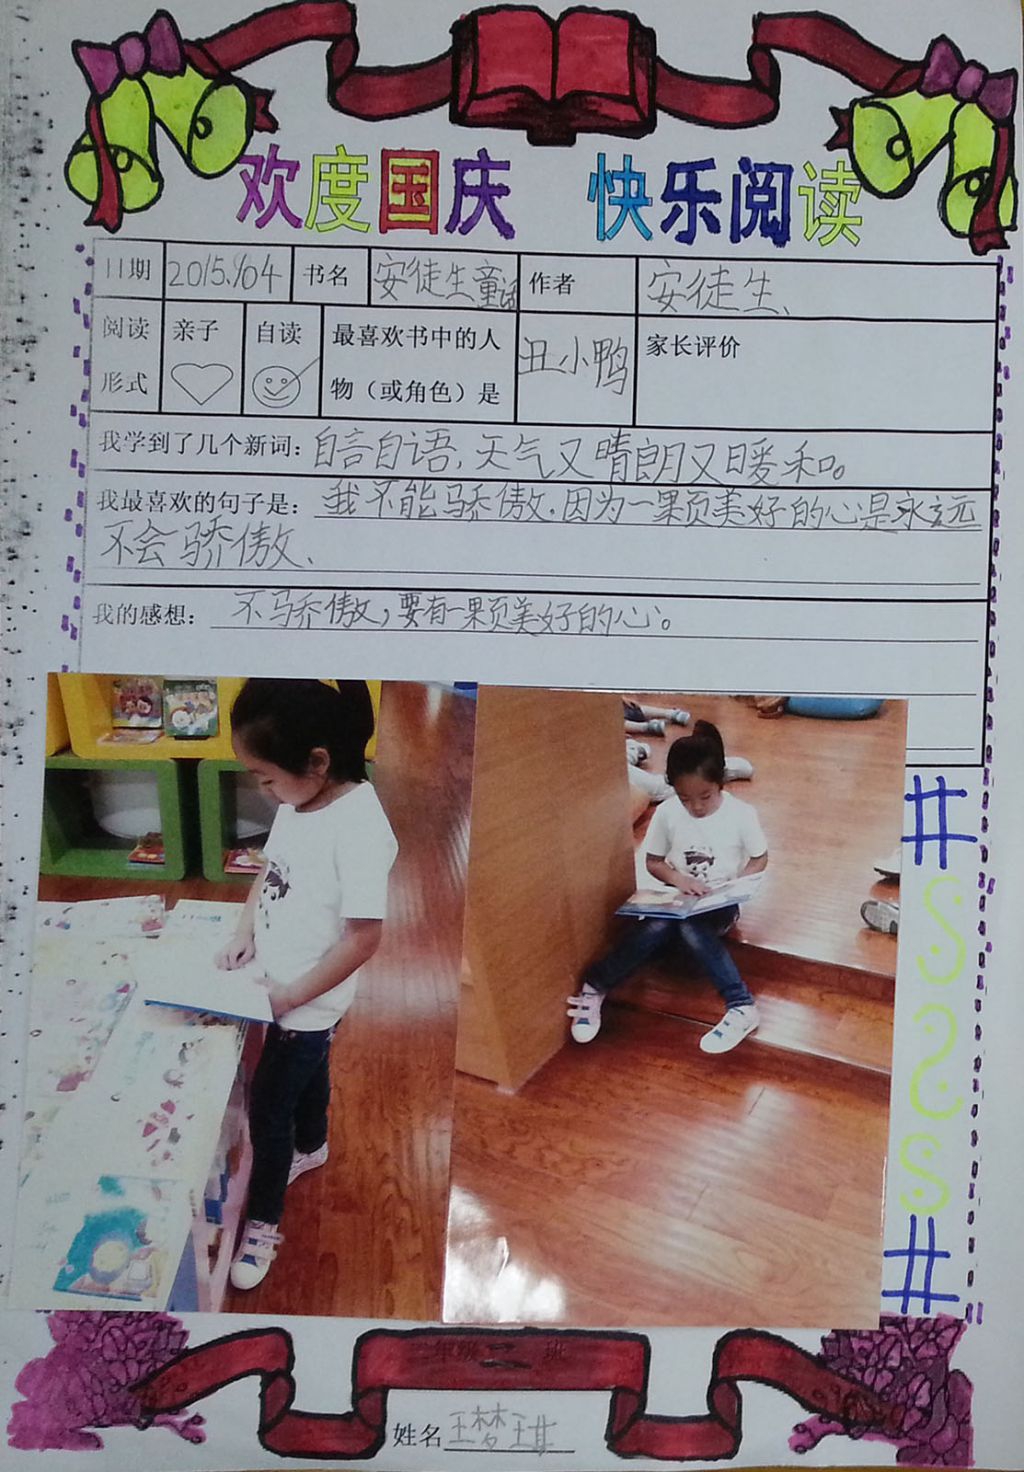 欢度国庆 快乐阅读
日期 2015.1/04 书名 安徒生童话 作者 安徒生、
阅读形式 亲子 自读 最喜欢书中的人物（或角色）是 丑小鸭 家长评价
我学到了几个新词：自言自语，天气又晴朗又暖和。
我最喜欢的句子是：我不能骄傲.因为一颗美好的心是永远
不会骄傲、
我的感想：不骄傲，要有一颗美好的心。
二年级 二 班
姓名 王梦琪